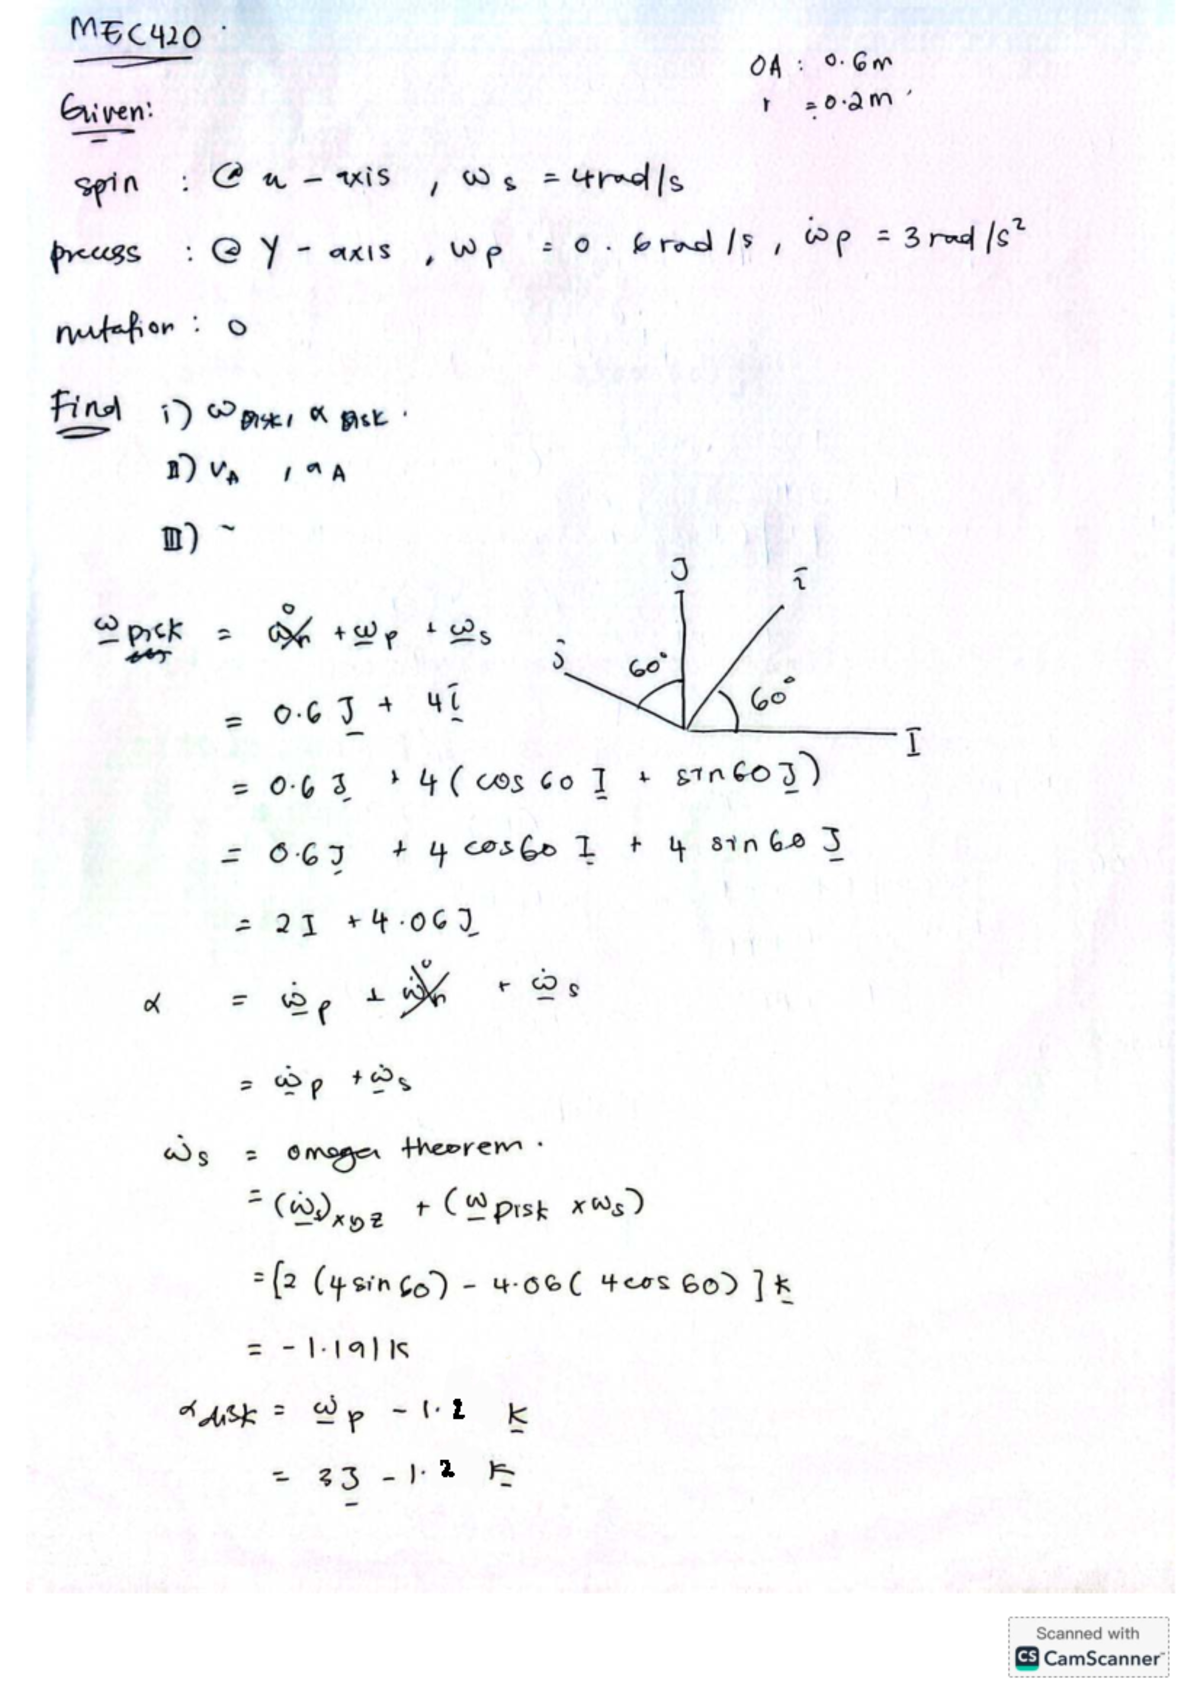 MEC420
OA : 0.6m
r = 0.2m
Given:
spin : @ x - axis , ωs = 4rad/s
precess : @ Y - axis , ωp = 0.6rad/s , ω̇p = 3rad/s²
nutation : 0
Find i) ωDisk, α Disk.
II) vA , aA
III) ~
ωDisk = ωn⁰ + ωp + ωs
= 0.6 J + 4i
= 0.6 J + 4 ( cos 60 I + sin 60 J )
= 0.6J + 4 cos60 I + 4 sin 60 J
= 2I + 4.06J
J
i
j
60°
60°
I
α = ω̇p + ω̇n⁰ + ω̇s
= ω̇p + ω̇s
ω̇s = omega theorem.
= (ω̇s)xyz + (ωDisk × ωs)
= [2 (4sin60) - 4.06( 4cos 60) ] k
= - 1.191K
αdisk = ω̇p - 1.2 k
= 3J - 1.2 K
Scanned with
CS CamScanner